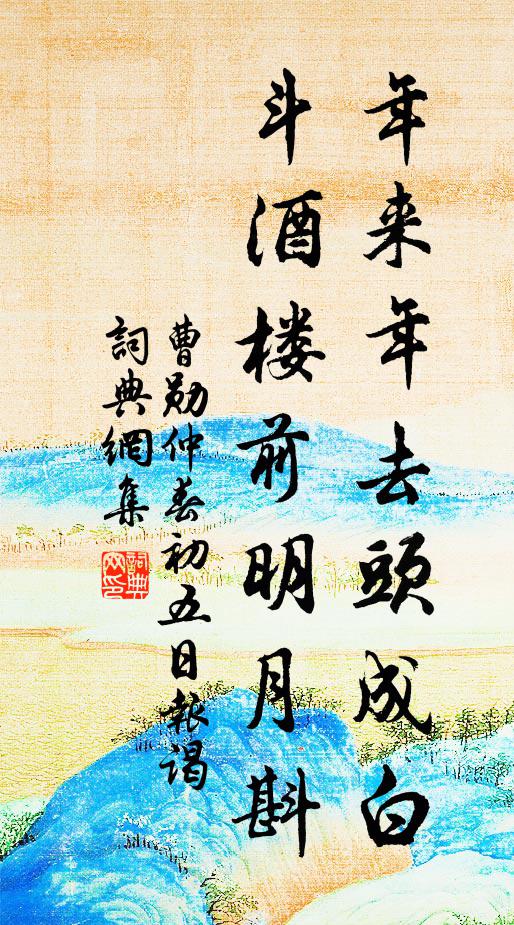 年来年去頭成白
斗酒楼前明月斟
曹勋仲春初五日報谒
詞典網集
詞典
网印